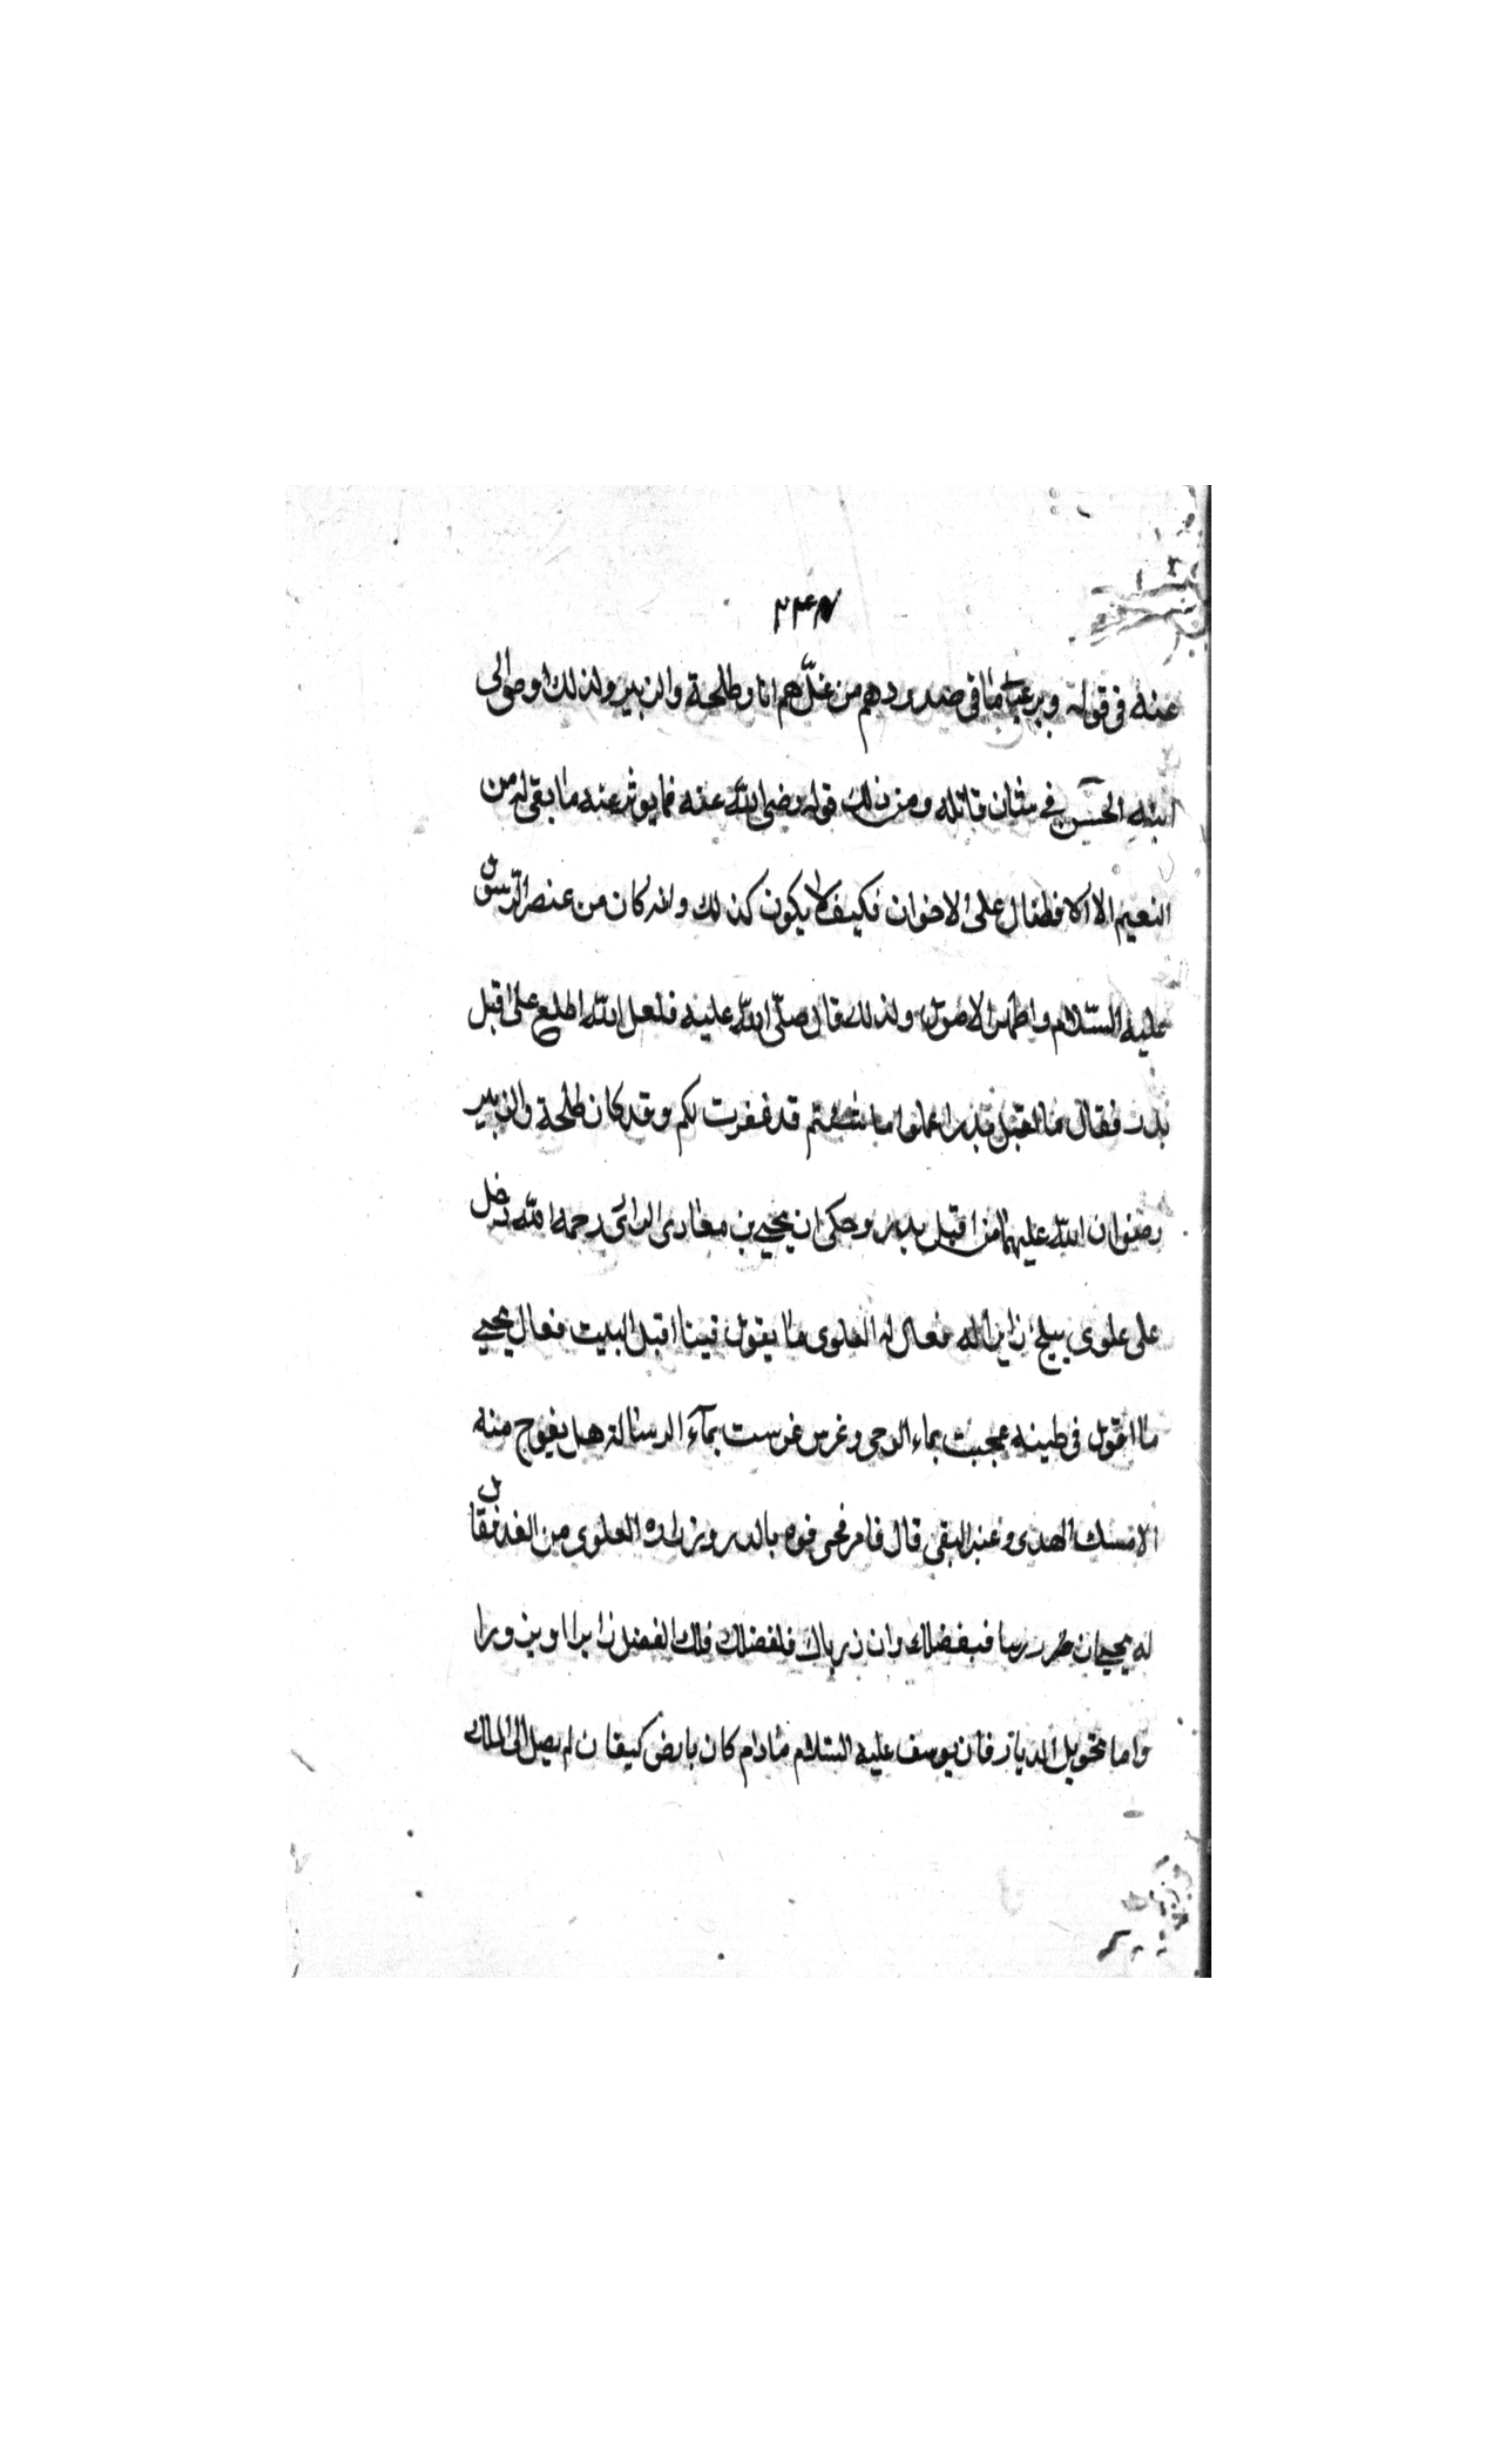 عنه فى قوله ونزعنا ما فى صدورهم من غلّ هم انا وطلحة والزبير ولذلك اوصى الى
ابنه الحسن فى شان قاتله ومن ذلك قوله رضى الله عنه فما يوثر عنه ما بقى له من
النعيم الا الافضال على الاخوان فكيف لا يكون كذلك وانه كان من عنصر الرسول
عليه السّلام واطهر الاصول ولذلك قال صلّى الله عليه فلعل الله اطلع على اهل
بدر فقال لاهل بدر اعملوا ما شئتم قد غفرت لكم وقد كان طلحة والزبير
رضوان الله عليهما من اهل بدر وحكى ان يحيى بن معاذ الرازى رحمه الله دخل
على علوى ببلخ زايرا له فقال له العلوى ما يقول فينا اهل البيت فقال يحيى
ما اقول فى طينه عجنت بماء الوحى وغرس غرست بمآء الرسالة هل يفوح منه
الا مسك الهدى وعنبر التقى قال فامر فحى فوه بالدر وزاره العلوى من الغد فقال
له يحيى ان زرتنا فبفضلك وان زرناك فلفضلك فلك الفضل زايرا ومزورا
واما تحويل الديار فان يوسف عليه السّلام مادام كان بارض كنعان لم يصل الى الملك